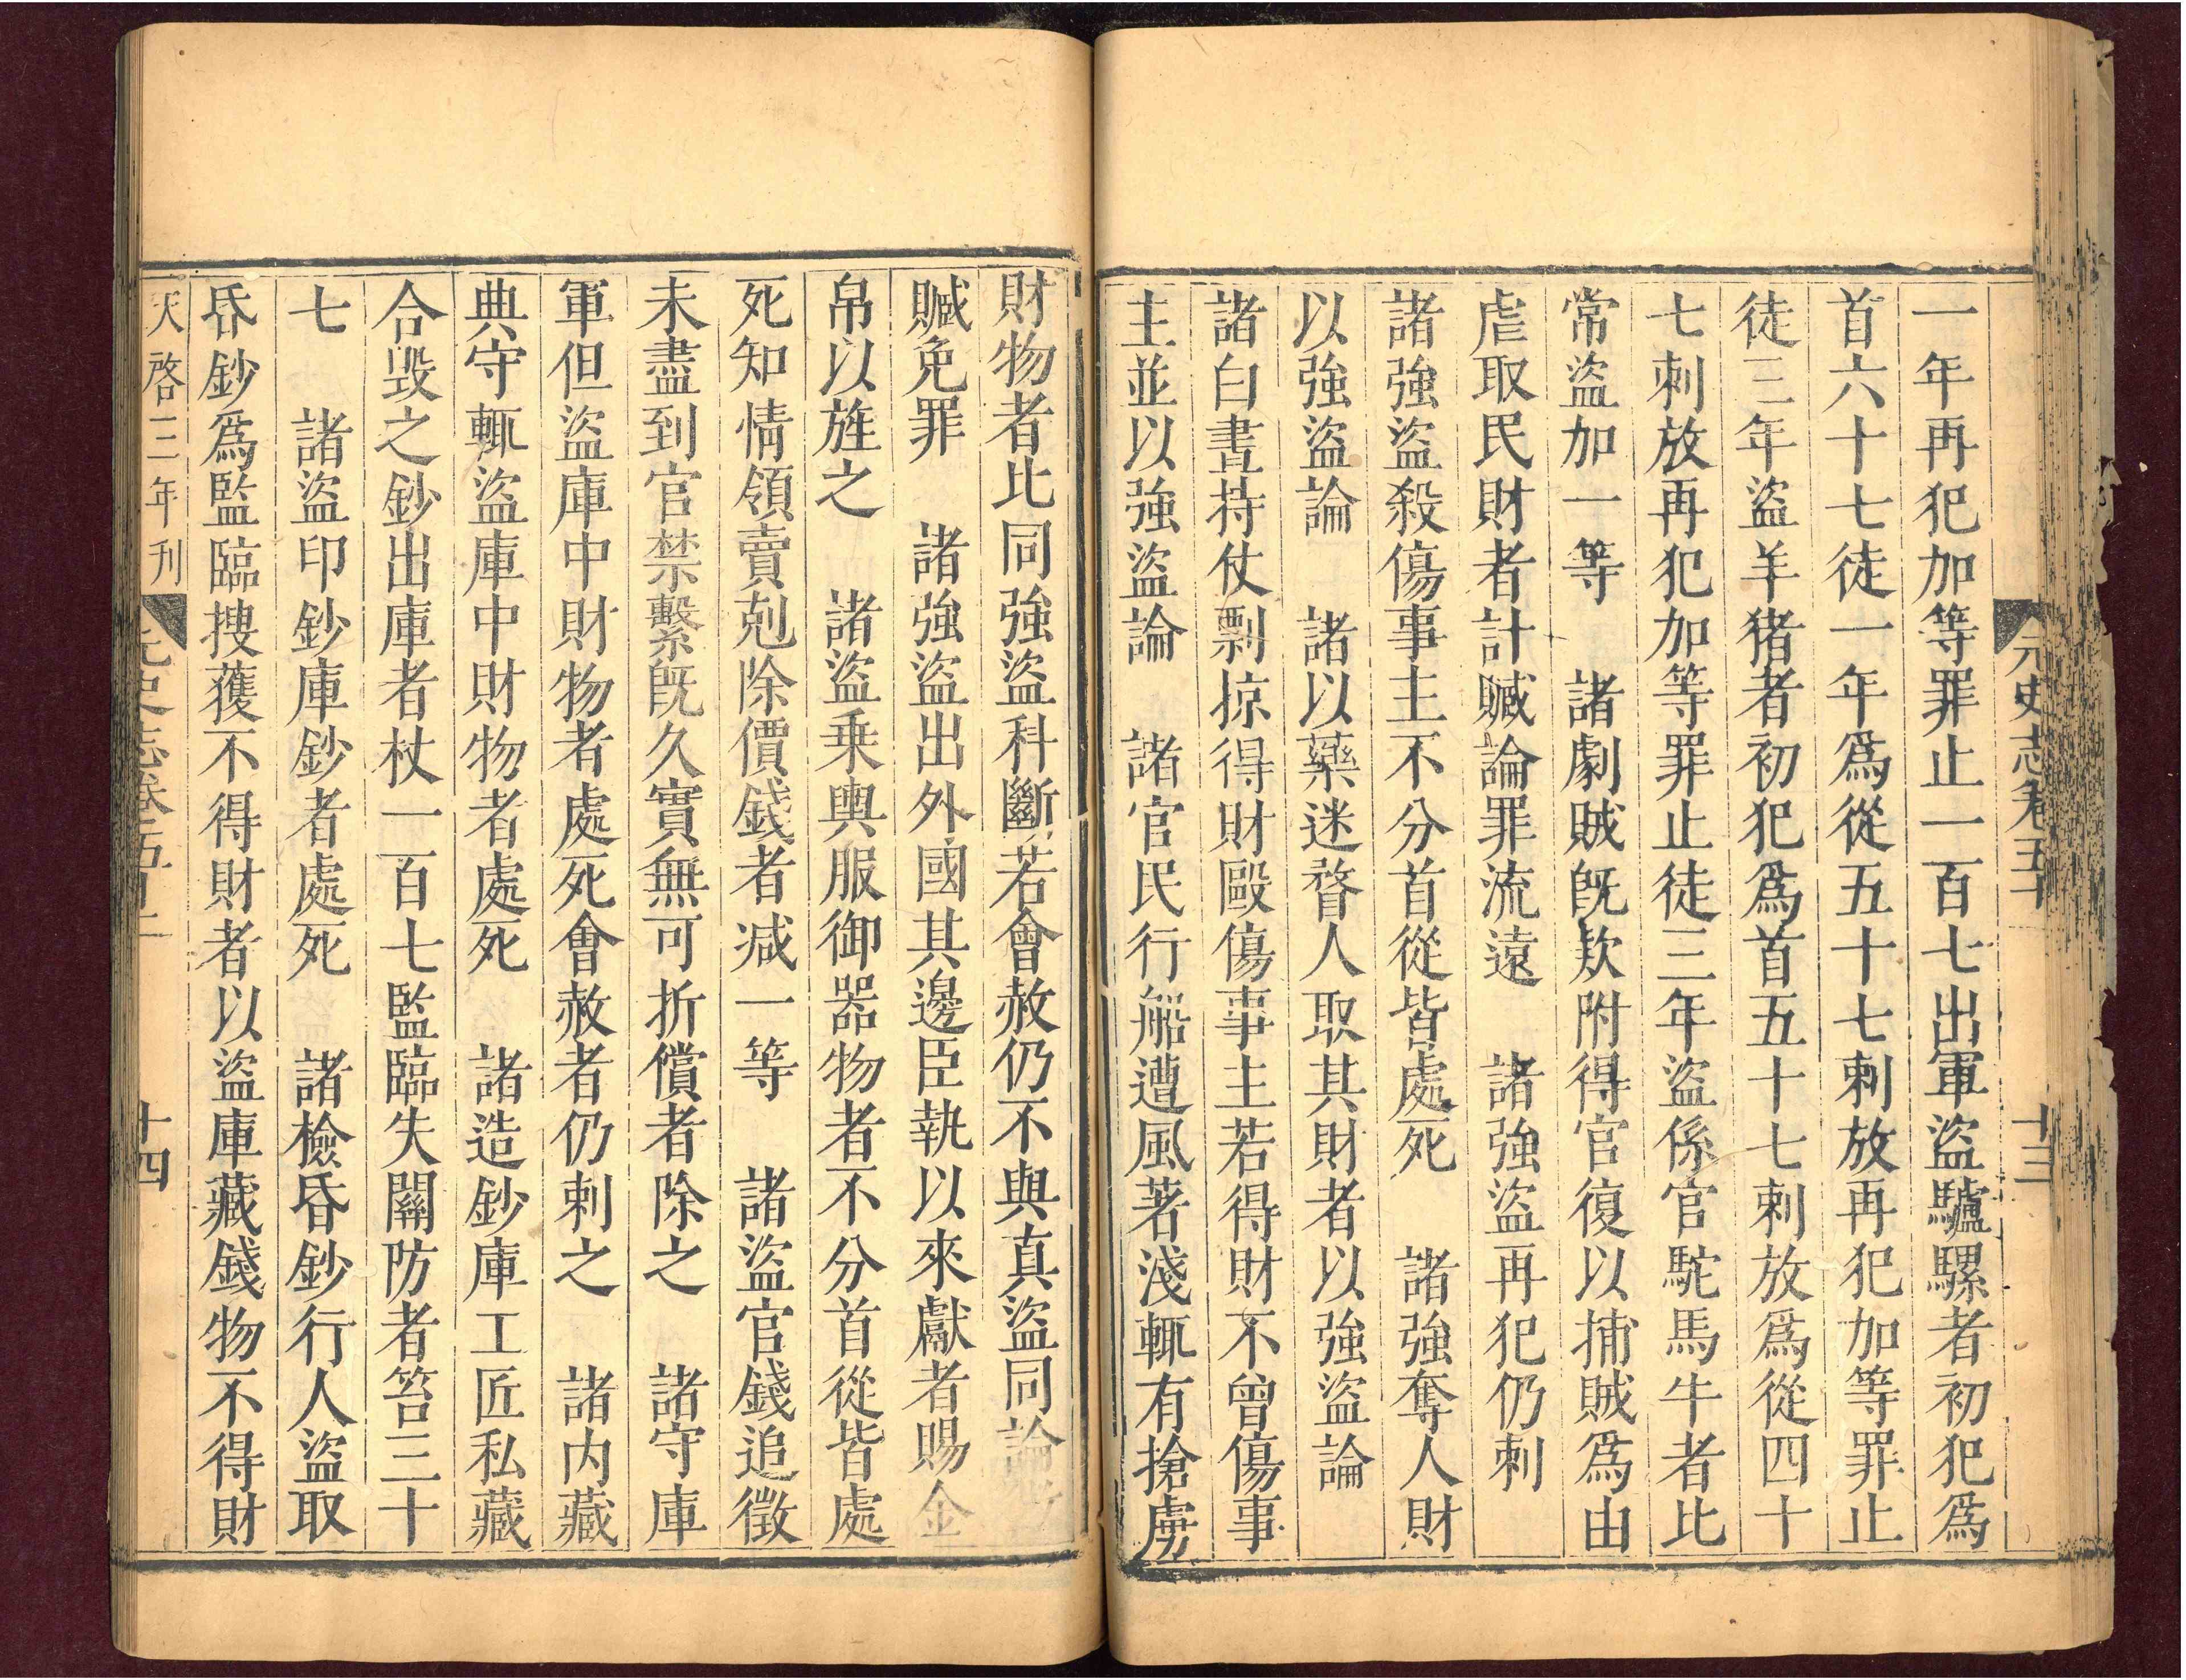 元史志卷五十
十三
一年再犯加等罪止一百七出軍盜驢騾者初犯爲
首六十七徒一年爲從五十七刺放再犯加等罪止
徒三年盜羊猪者初犯爲首五十七刺放爲從四十
七刺放再犯加等罪止徒三年盜係官駝馬牛者比
常盜加一等　諸劇賊旣欵附得官復以捕賊爲由
虐取民財者計贓論罪流遠　諸強盜再犯仍刺
諸強盜殺傷事主不分首從皆處死　諸強奪人財
以強盜論　諸以藥迷瞀人取其財者以強盜論
諸白晝持仗剽掠得財毆傷事主若得財不曾傷事
主並以強盜論　諸官民行船遭風著淺輒有搶虜
財物者比同強盜科斷若會赦仍不與真盜同論
贓免罪　諸強盜出外國其邊臣執以來獻者賜金
帛以旌之　諸盜乗輿服御器物者不分首從皆處
死知情領賣剋除價錢者減一等　諸盜官錢追徵
未盡到官禁繫旣久實無可折償者除之　諸守庫
軍但盜庫中財物者處死會赦者仍刺之　諸内藏
典守輒盜庫中財物者處死　諸造鈔庫工匠私藏
合毀之鈔出庫者杖一百七監臨失關防者笞三十
七　諸盜印鈔庫鈔者處死　諸檢昏鈔行人盜取
昏鈔爲監臨搜獲不得財者以盜庫藏錢物不得財
天啓三年刊
元史志卷五十
十四